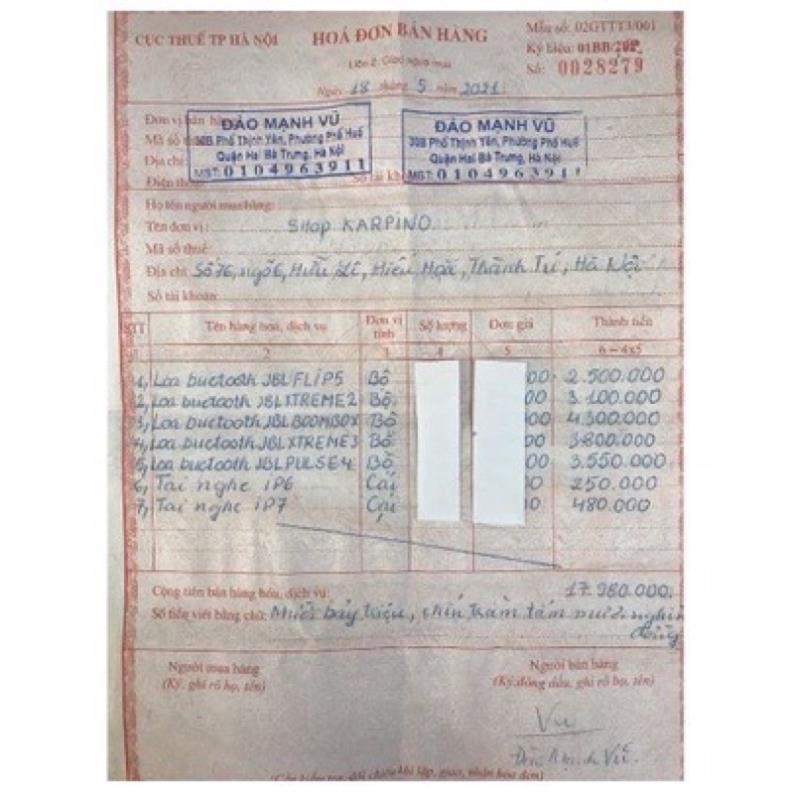 CỤC THUẾ TP HÀ NỘI
HOÁ ĐƠN BÁN HÀNG
Liên 2: Giao người mua
Ngày 18 tháng 5 năm 2021
Mẫu số: 02GTTT3/001
Ký hiệu: 01BB/20P
Số: 0028279
Đơn vị bán
Mã số
Địa chỉ:
Điện thoại
Số tài
ĐÀO MẠNH VŨ
30B Phố Thịnh Yên, Phường Phố Huế
Quận Hai Bà Trưng, Hà Nội
MST: 0104963911
ĐÀO MẠNH VŨ
30B Phố Thịnh Yên, Phường Phố Huế
Quận Hai Bà Trưng, Hà Nội
MST: 0104963911
Họ tên người mua hàng:
Tên đơn vị: SHop KARPINO
Mã số thuế:
Địa chỉ: Số 76, ngõ 6, Hữu Lê, Hiếu Hoà, Thành Trì, Hà Nội
Số tài khoản:
STT Tên hàng hóa, dịch vụ Đơn vị tính Số lượng Đơn giá Thành tiền
1 2 3 4 5 6=4x5
1, Loa buctooth JBL FLIP5 Bộ 00 2.500.000
2, Loa buctooth JBL XTREME2 Bộ 00 3.100.000
3, Loa buctooth JBL BOOMBOX Bộ 00 4.300.000
4, Loa buctooth JBL XTREME3 Bộ 00 3.800.000
5, Loa buctooth JBL PULSE4 Bộ 00 3.550.000
6, Tai nghe iP6 Cái 00 250.000
7, Tai nghe iP7 Cái 00 480.000
Cộng tiền bán hàng hóa, dịch vụ: 17.980.000.
Số tiền viết bằng chữ: Mười bảy triệu, chín trăm tám mươi nghìn
đồng
Người mua hàng
(Ký, ghi rõ họ, tên)
Người bán hàng
(Ký, đóng dấu, ghi rõ họ, tên)
Vũ
Đào Mạnh Vũ
(Cần kiểm tra, đối chiếu khi lập, giao, nhận hóa đơn)